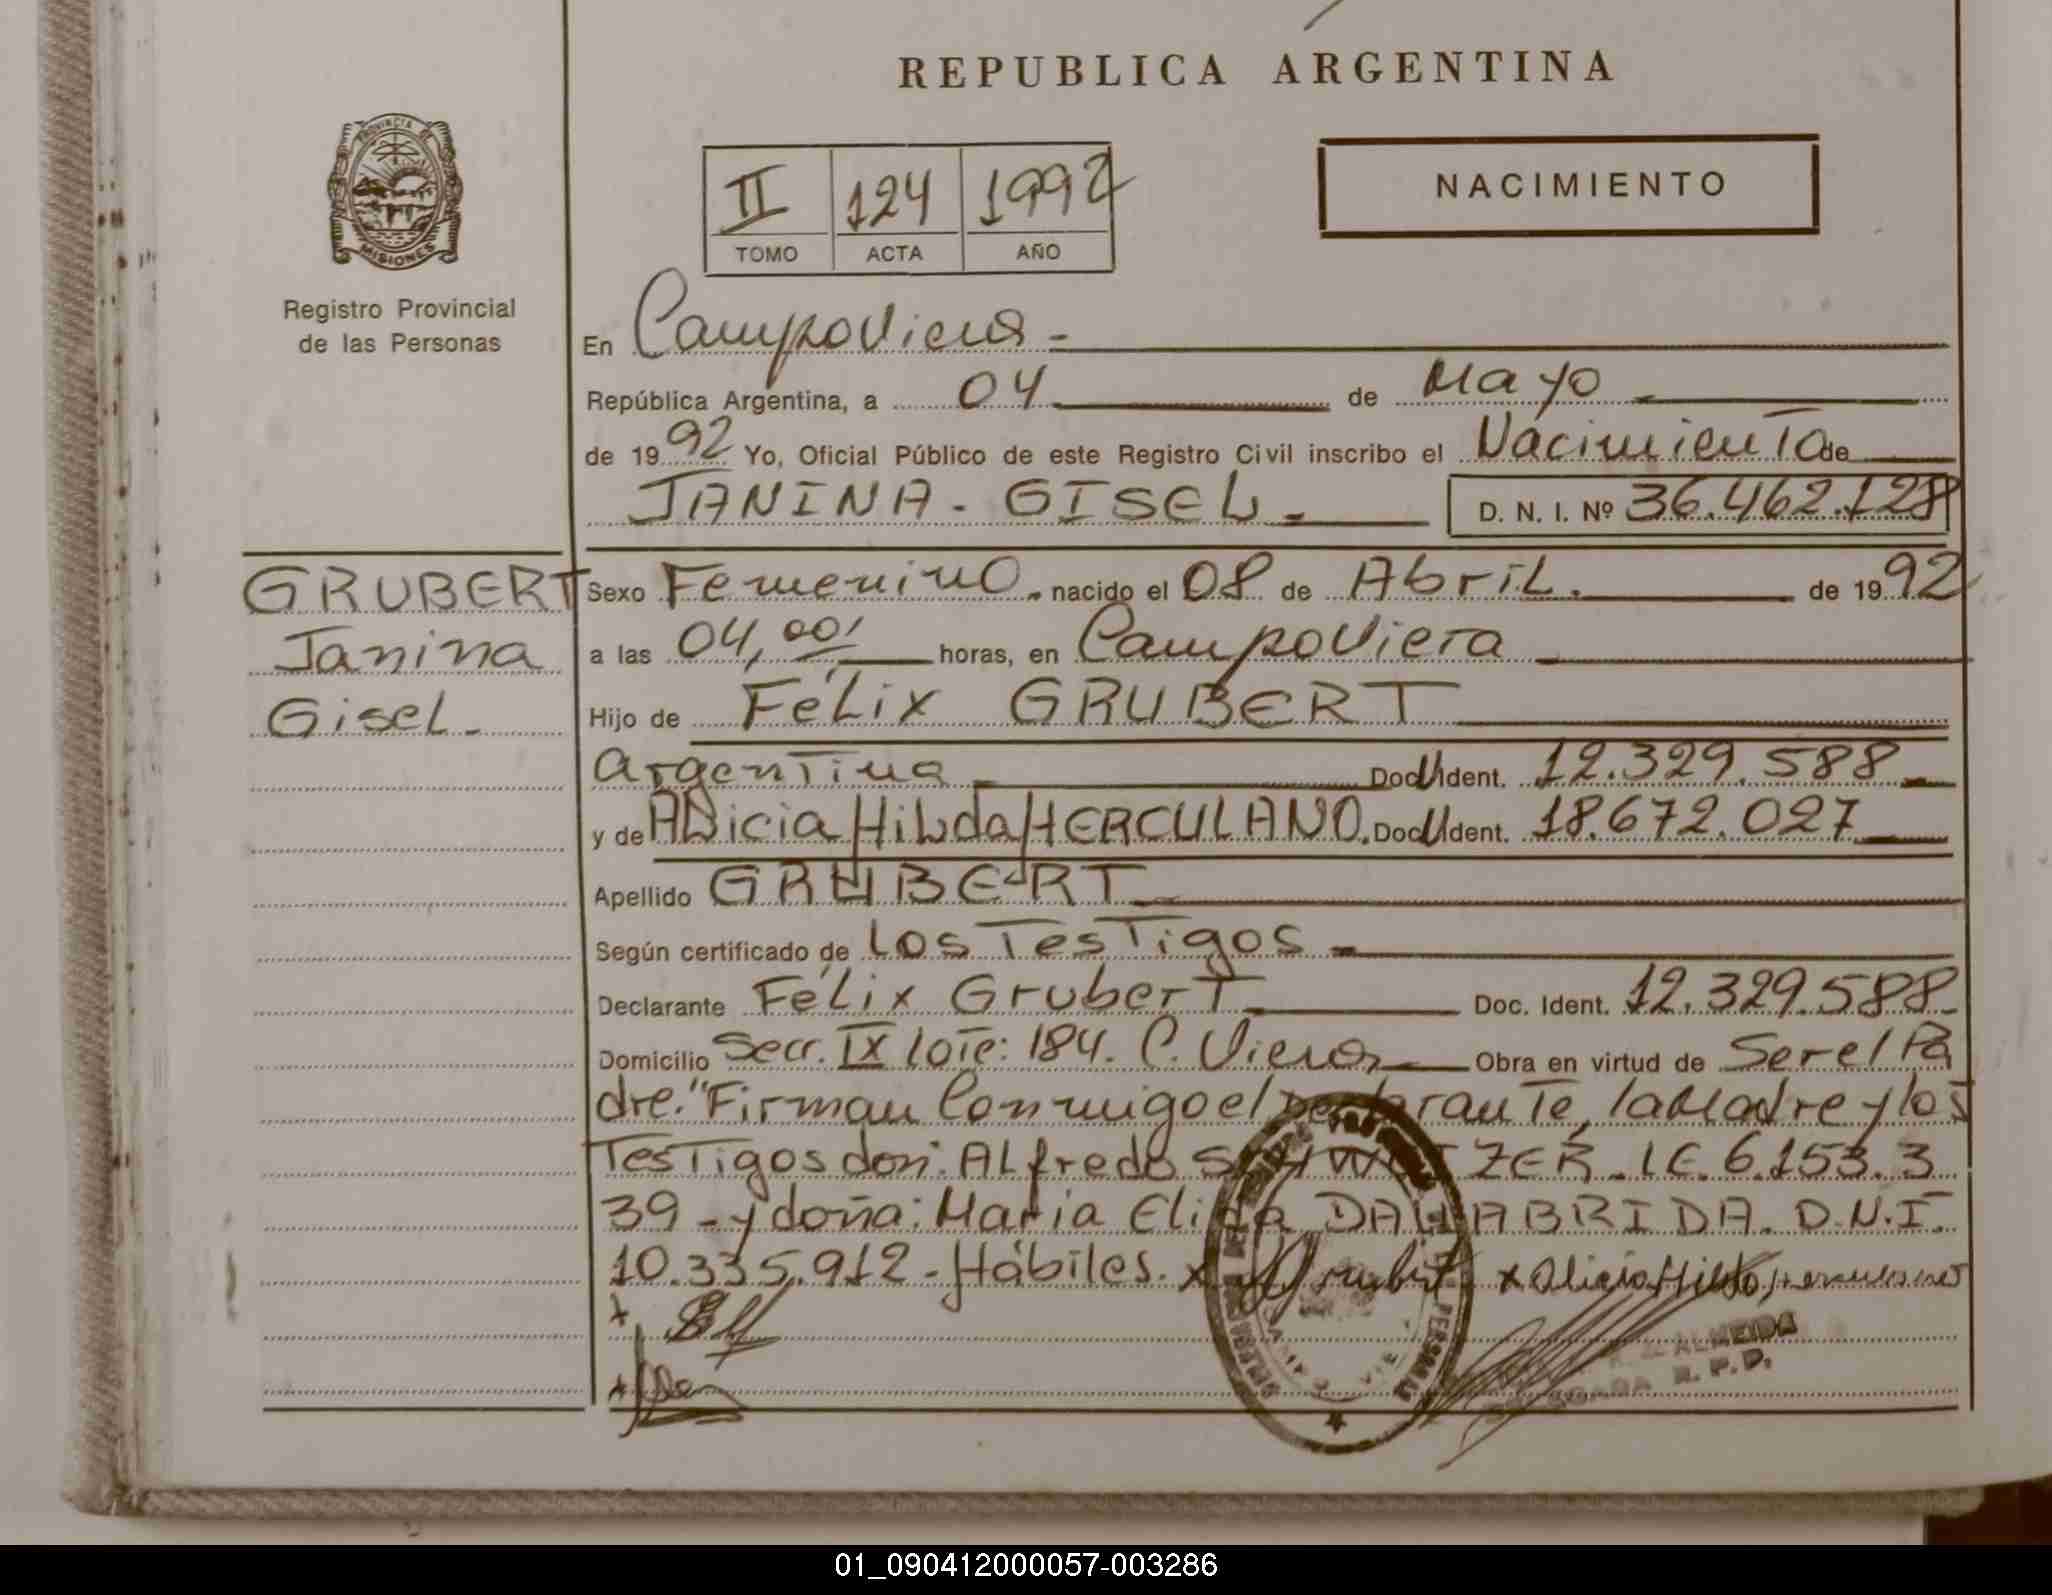 REPUBLICA ARGENTINA
PROVINCIA DE
MISIONES
Registro Provincial
de las Personas
II 124 1992
TOMO ACTA AÑO
NACIMIENTO
En CampoViera -
República Argentina, a 04 de Mayo
de 1992 Yo, Oficial Público de este Registro Civil inscribo el Nacimiento de
JANINA - GISEL - D. N. I. Nº 36.462.128
GRUBERT
Janina
Gisel -
Sexo Femenino. nacido el 08 de Abril. de 1992
a las 04,00' horas, en CampoViera
Hijo de Félix GRUBERT
Argentina Doc U Ident. 12.329.588
y de ALicia HiLda HERCULANO. Doc U Ident. 18.672.027
Apellido GRUBERT
Según certificado de Los Testigos -
Declarante Félix Grubert Doc. Ident. 12.329.588-
Domicilio Secc. IX lote: 184. C. Viera Obra en virtud de Ser el Pa
dre."Firman Conmigo el declarante, la Madre y los
Testigos don: ALfredo IC. 6.153.3
39 - y doña: Maria Elida D.N.I.
10.335.912 - Hábiles. x Grubert x Alicia Hilda Herculano
ALMEIDA
R. P. P.
01_090412000057-003286